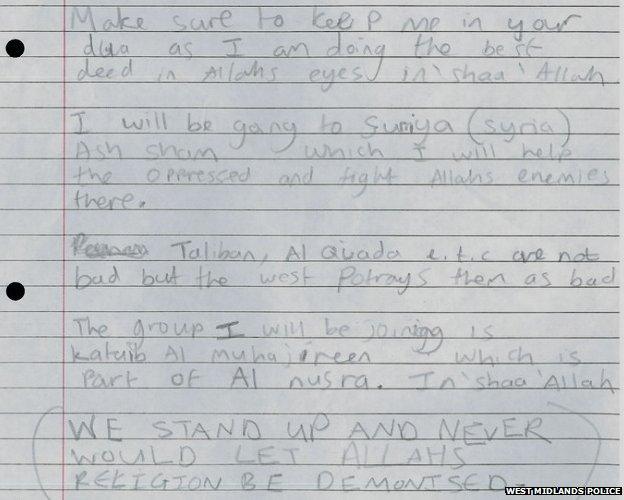 Make sure to keep me in your
dua as I am doing the best
deed in Allahs eyes in'shaa'Allah
I will be gang to Suriya (syria)
Ash sham which I will help
the oppressed and fight Allahs enemies
there.
Taliban, Al Quada e.t.c are not
bad but the west Potrays them as bad
The group I will be joining is
Katuib Al muhajireen which is
Part of Al nusra. In'shaa'Allah
WE STAND UP AND NEVER
WOULD LET ALLAHS
RELIGION BE DEMONISED.
WEST MIDLANDS POLICE